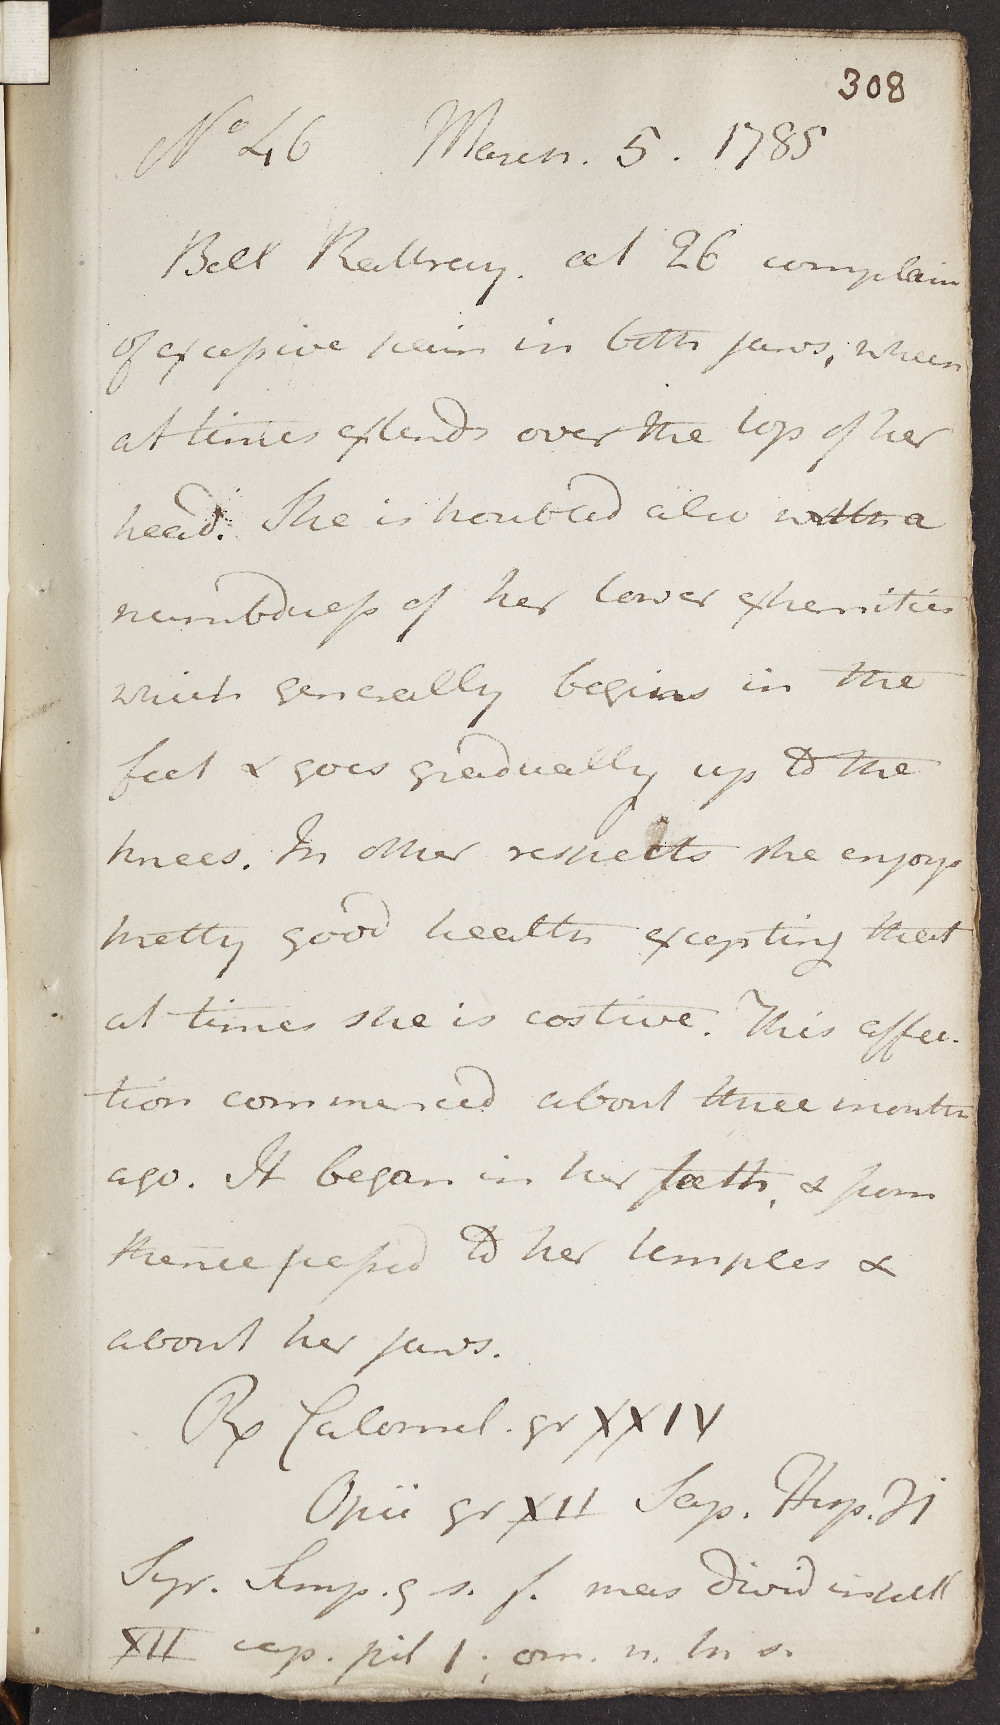 308
No 46 March. 5. 1785
Bell Rattray. aet 26 complain
of excessive pain in both jaws, which
at times extends over the top of her
head. She is troubled also with a
numbdness of her lower extremities
which generally begins in the
feet & goes gradually up to the
knees. In other respects she enjoys
pretty good health excepting that
at times she is costive. This affec-
tion commenced about three months
ago. It began in her teeth, & from
thence passed to her temples &
about her jaws.
Rx Calomel. gr XXIV
Opii gr XII Sap. Hisp. ʒi
Syr. Simp. q s. f. mas divid in pill
XII cap. pil 1. om. n. h. s.